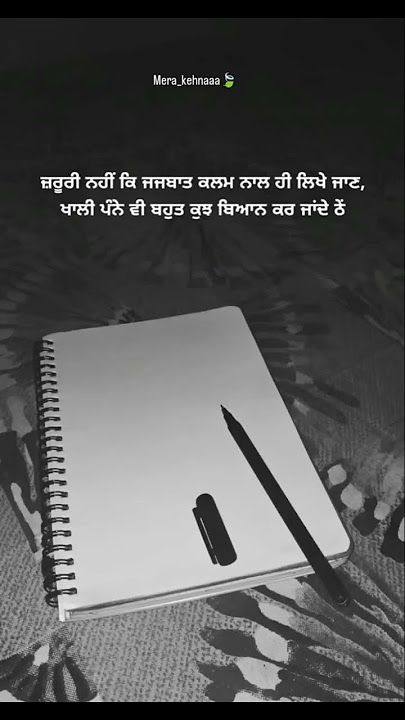 Mera_kehnaaa🍃
ਜ਼ਰੂਰੀ ਨਹੀਂ ਕਿ ਜਜਬਾਤ ਕਲਮ ਨਾਲ ਹੀ ਲਿਖੇ ਜਾਣ,
ਖਾਲੀ ਪੰਨੇ ਵੀ ਬਹੁਤ ਕੁਝ ਬਿਆਨ ਕਰ ਜਾਂਦੇ ਨੇਂ